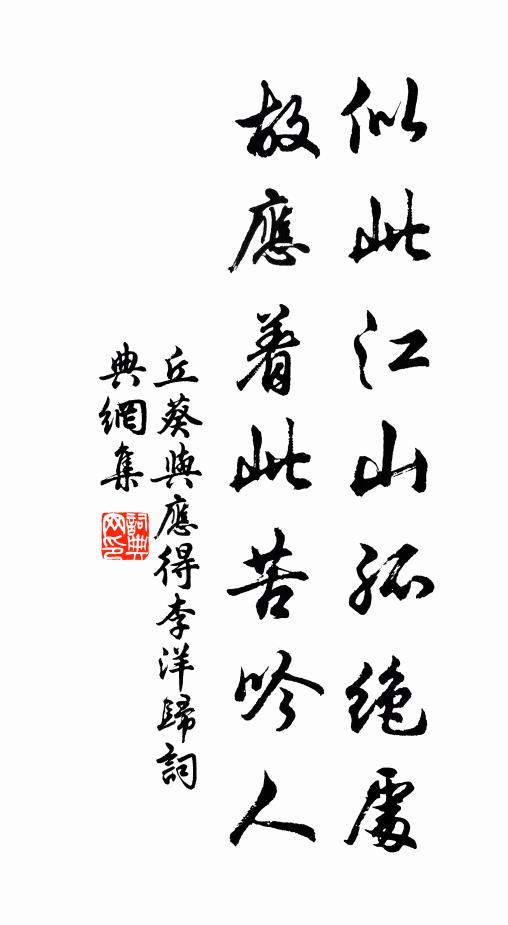 似此江山孤絕處
故應着此苦吟人
丘葵與應得李洋歸詞
典網集
詞典
网印